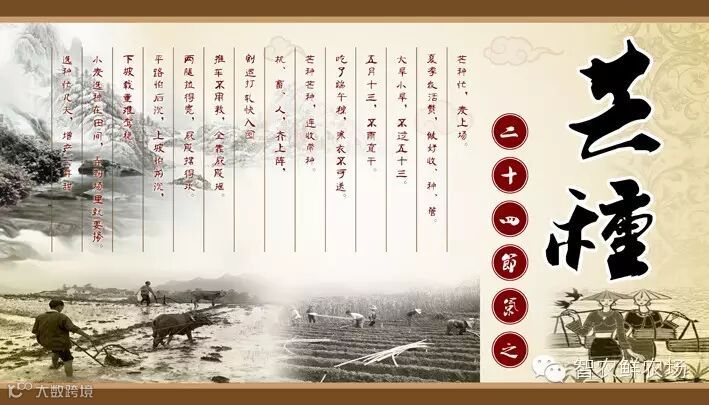 芒種
二十四節氣之
芒种忙，麦上场。
夏季农活繁，做好收、种、管。
大旱小旱，不过五十三。
五月十三，不雨直干。
吃了端午粽，寒衣不可送。
芒种芒种，连收带种。
机、畜、人，齐上阵，
割运打轧快入囤
推车不用教，全靠屁股摇。
两腿拉得宽，屁股摆得
平路怕后沉，上坡怕两沉，
下坡载重准
小麦选种在田间，场里就要掺。
选种忙几天，增产一年
智农鲜农场
大数跨境